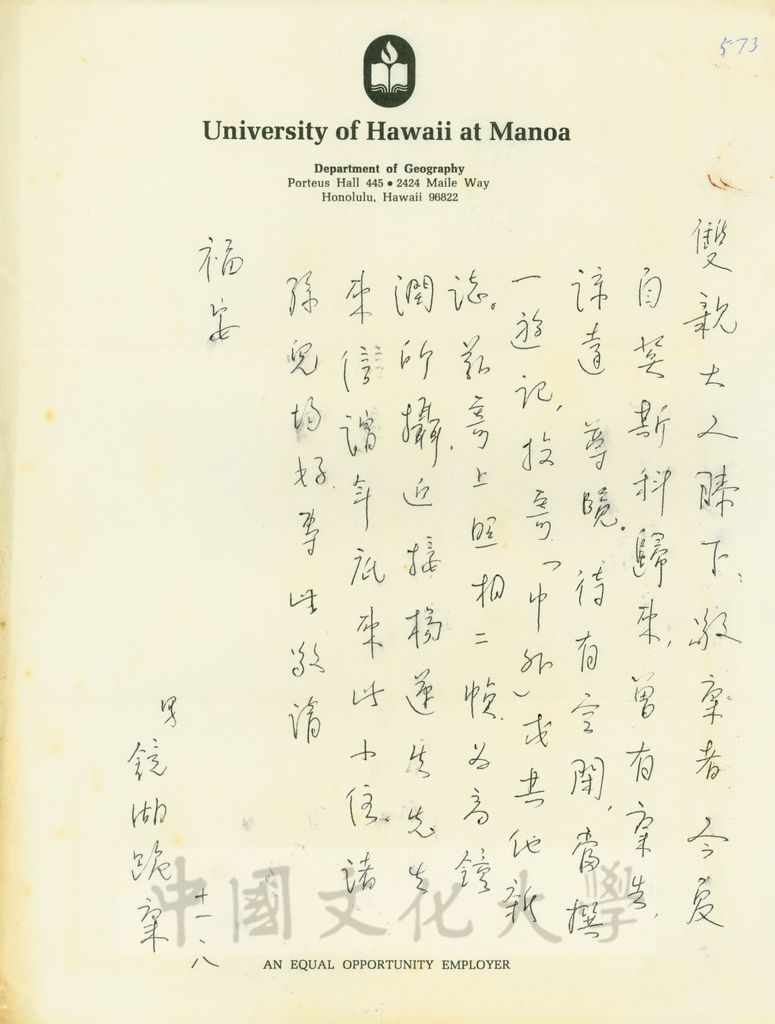 573
University of Hawaii at Manoa
Department of Geography
Porteus Hall 445 • 2424 Maile Way
Honolulu, Hawaii 96822
雙親大人膝下：敬稟者今夏
自莫斯科歸來，曾有稟告，
諒達尊覽。待有空閑，當撰
一遊記，投寄（中外）或其他新
誌。茲寄上照相二幀，為高鐘
潤所攝。近接楊蓮生先生
來信謂年底來此小住。諸
孫兒均好。專此敬請
福安
男
鏡湖跪稟
十一、八
中國文化大學
AN EQUAL OPPORTUNITY EMPLOYER